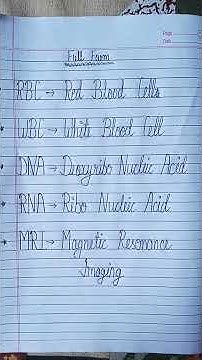 Page
Date
Full Form
RBC → Red Blood Cells
WBC → White Blood Cell
DNA → Dioxyribo Nucleic Acid
RNA → Ribo Nucleic Acid
MRI → Magnetic Resonance
Imaging